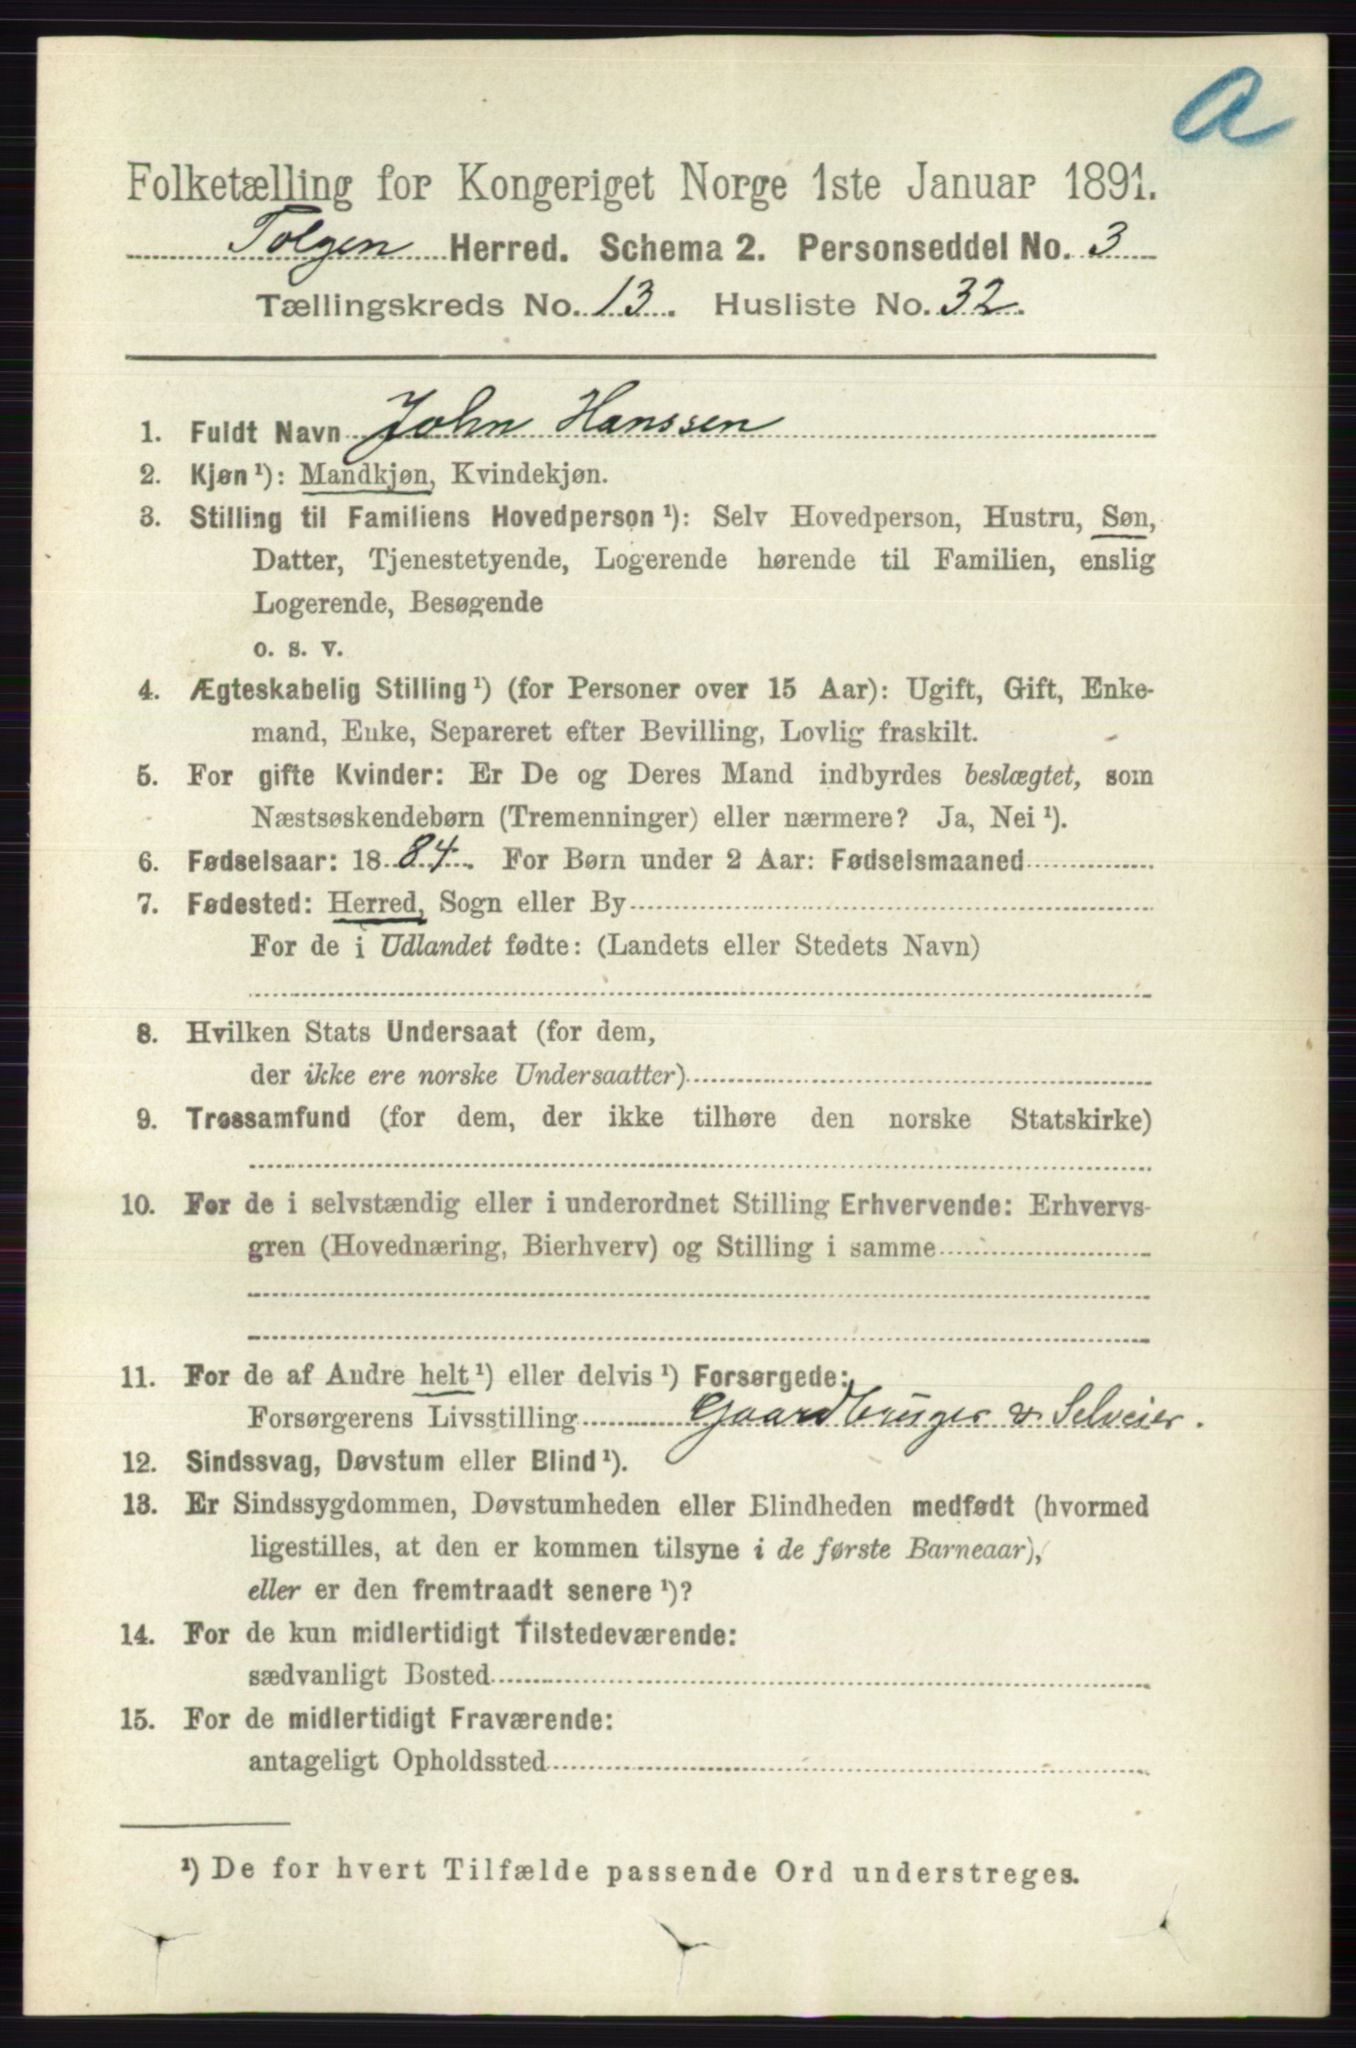 a
Folketælling for Kongeriget Norge 1ste Januar 1891.
Tolgen Herred. Schema 2. Personseddel No. 3
Tællingskreds No. 13. Husliste No. 32.
1. Fuldt Navn John Hanssen
2. Kjøn ¹): Mandkjøn, Kvindekjøn.
3. Stilling til Familiens Hovedperson ¹): Selv Hovedperson, Hustru, Søn,
Datter, Tjenestetyende, Logerende hørende til Familien, enslig
Logerende, Besøgende
o. s. v.
4. Ægteskabelig Stilling ¹) (for Personer over 15 Aar): Ugift, Gift, Enke-
mand, Enke, Separeret efter Bevilling, Lovlig fraskilt.
5. For gifte Kvinder: Er De og Deres Mand indbyrdes beslægtet, som
Næstsøskendebørn (Tremenninger) eller nærmere? Ja, Nei ¹).
6. Fødselsaar: 1884. For Børn under 2 Aar: Fødselsmaaned
7. Fødested: Herred, Sogn eller By
For de i Udlandet fødte: (Landets eller Stedets Navn)
8. Hvilken Stats Undersaat (for dem,
der ikke ere norske Undersaatter)
9. Trossamfund (for dem, der ikke tilhøre den norske Statskirke)
10. For de i selvstændig eller i underordnet Stilling Erhvervende: Erhvervs-
gren (Hovednæring, Bierhverv) og Stilling i samme
11. For de af Andre helt ¹) eller delvis ¹) Forsørgede:
Forsørgerens Livsstilling Gaardbruger & Selveier.
12. Sindssvag, Døvstum eller Blind ¹).
13. Er Sindssygdommen, Døvstumheden eller Blindheden medfødt (hvormed
ligestilles, at den er kommen tilsyne i de første Barneaar),
eller er den fremtraadt senere ¹)?
14. For de kun midlertidigt Tilstedeværende:
sædvanligt Bosted
15. For de midlertidigt Fraværende:
antageligt Opholdssted
¹) De for hvert Tilfælde passende Ord understreges.